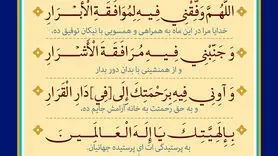 اللَّهُمَّ وَفِّقْنِي فِيهِ لِمُوَافَقَةِ الْأَبْرَارِ
خدایا مرا در این ماه به همراهی و همسویی با نیکان توفیق ده،
وَ جَنِّبْنِي فِيهِ مُرَافَقَةَ الْأَشْرَارِ
و از همنشینی با بدان دور بدار
وَ آوِنِي فِيهِ بِرَحْمَتِكَ إِلَى [فِي] دَارِ الْقَرَارِ
و به حق رحمتت به خانه آرامش جایم ده،
بِإِلَهِيَّتِكَ يَا إِلَهَ الْعَالَمِينَ
به پرستیدگی ات ای پرستیده جهانیان.